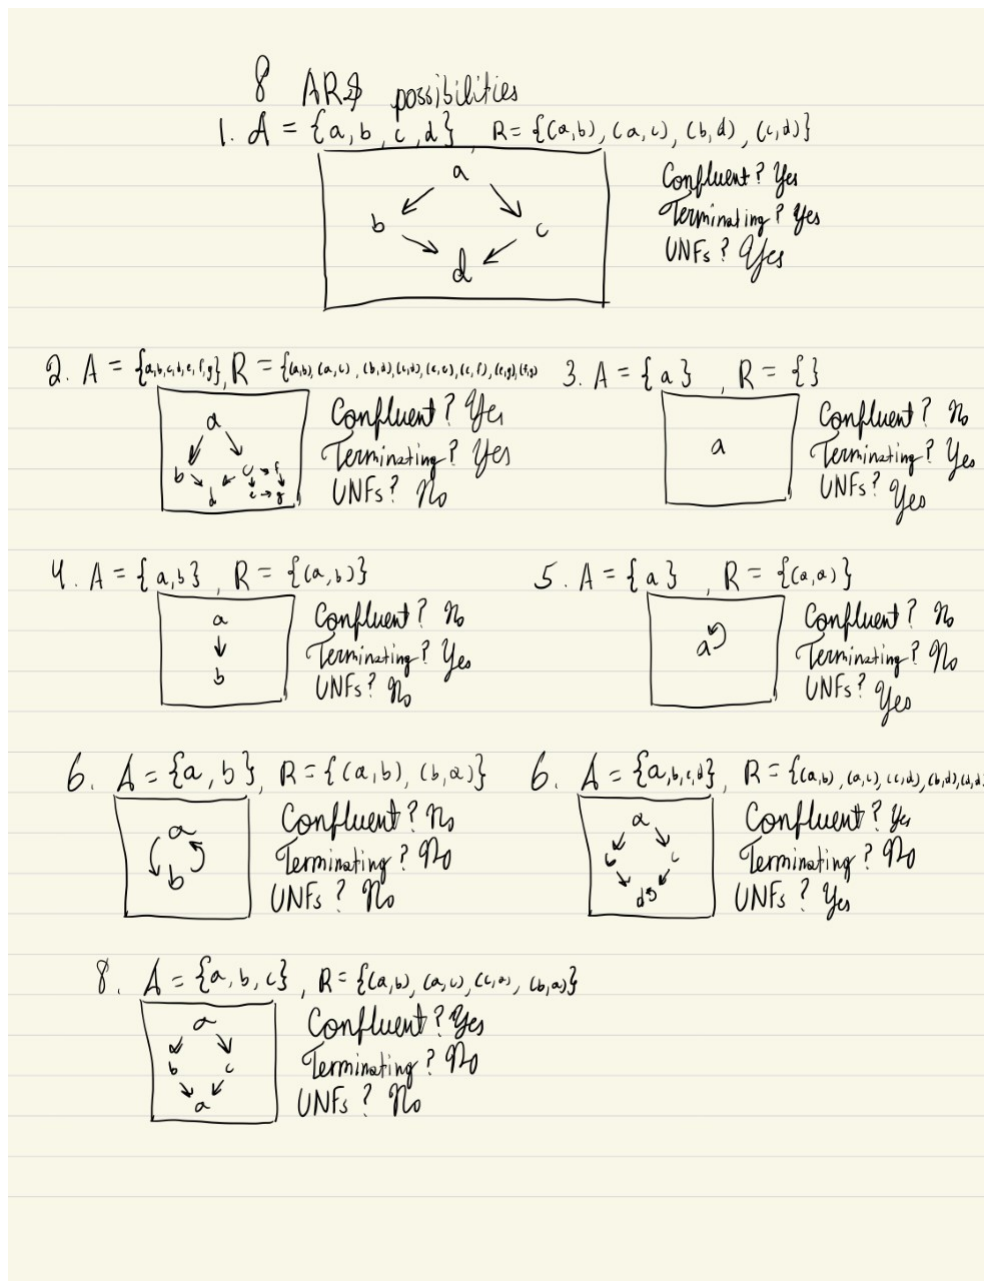 8 ARS possibilities
1. A = {a,b,c,d}, R = {(a,b), (a,c), (b,d), (c,d)}
a
b c
d
Confluent? Yes
Terminating? Yes
UNFs? Yes
2. A = {a,b,c,d,e,f,g}, R = {(a,b), (a,c), (b,d), (c,d), (c,e), (c,f), (e,g), (f,g)
a
b c f
d e g
Confluent? Yes
Terminating? Yes
UNFs? No
3. A = {a}, R = {}
a
Confluent? No
Terminating? Yes
UNFs? Yes
4. A = {a,b}, R = {(a,b)}
a
b
Confluent? No
Terminating? Yes
UNFs? No
5. A = {a}, R = {(a,a)}
a
Confluent? No
Terminating? No
UNFs? Yes
6. A = {a,b}, R = {(a,b), (b,a)}
a
b
Confluent? No
Terminating? No
UNFs? No
6. A = {a,b,c,d}, R = {(a,b), (a,c), (c,d), (b,d), (d,d
a
c
d
Confluent? Yes
Terminating? No
UNFs? Yes
8. A = {a,b,c}, R = {(a,b), (a,c), (c,a), (b,a)}
a
b c
a
Confluent? Yes
Terminating? No
UNFs? No